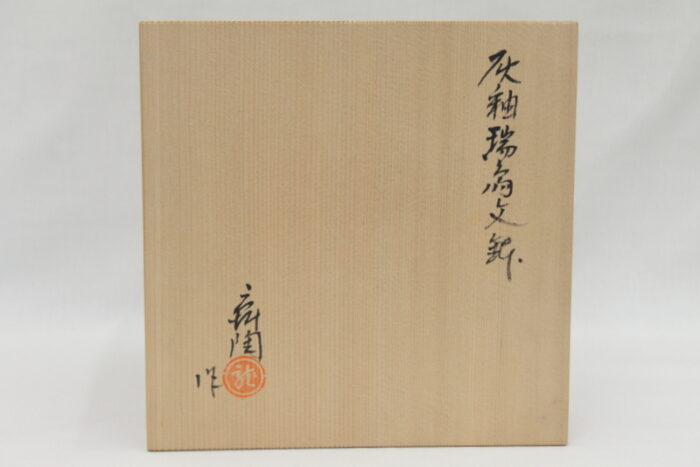 灰釉瑞鳥文鉢
舜陶
作
龍